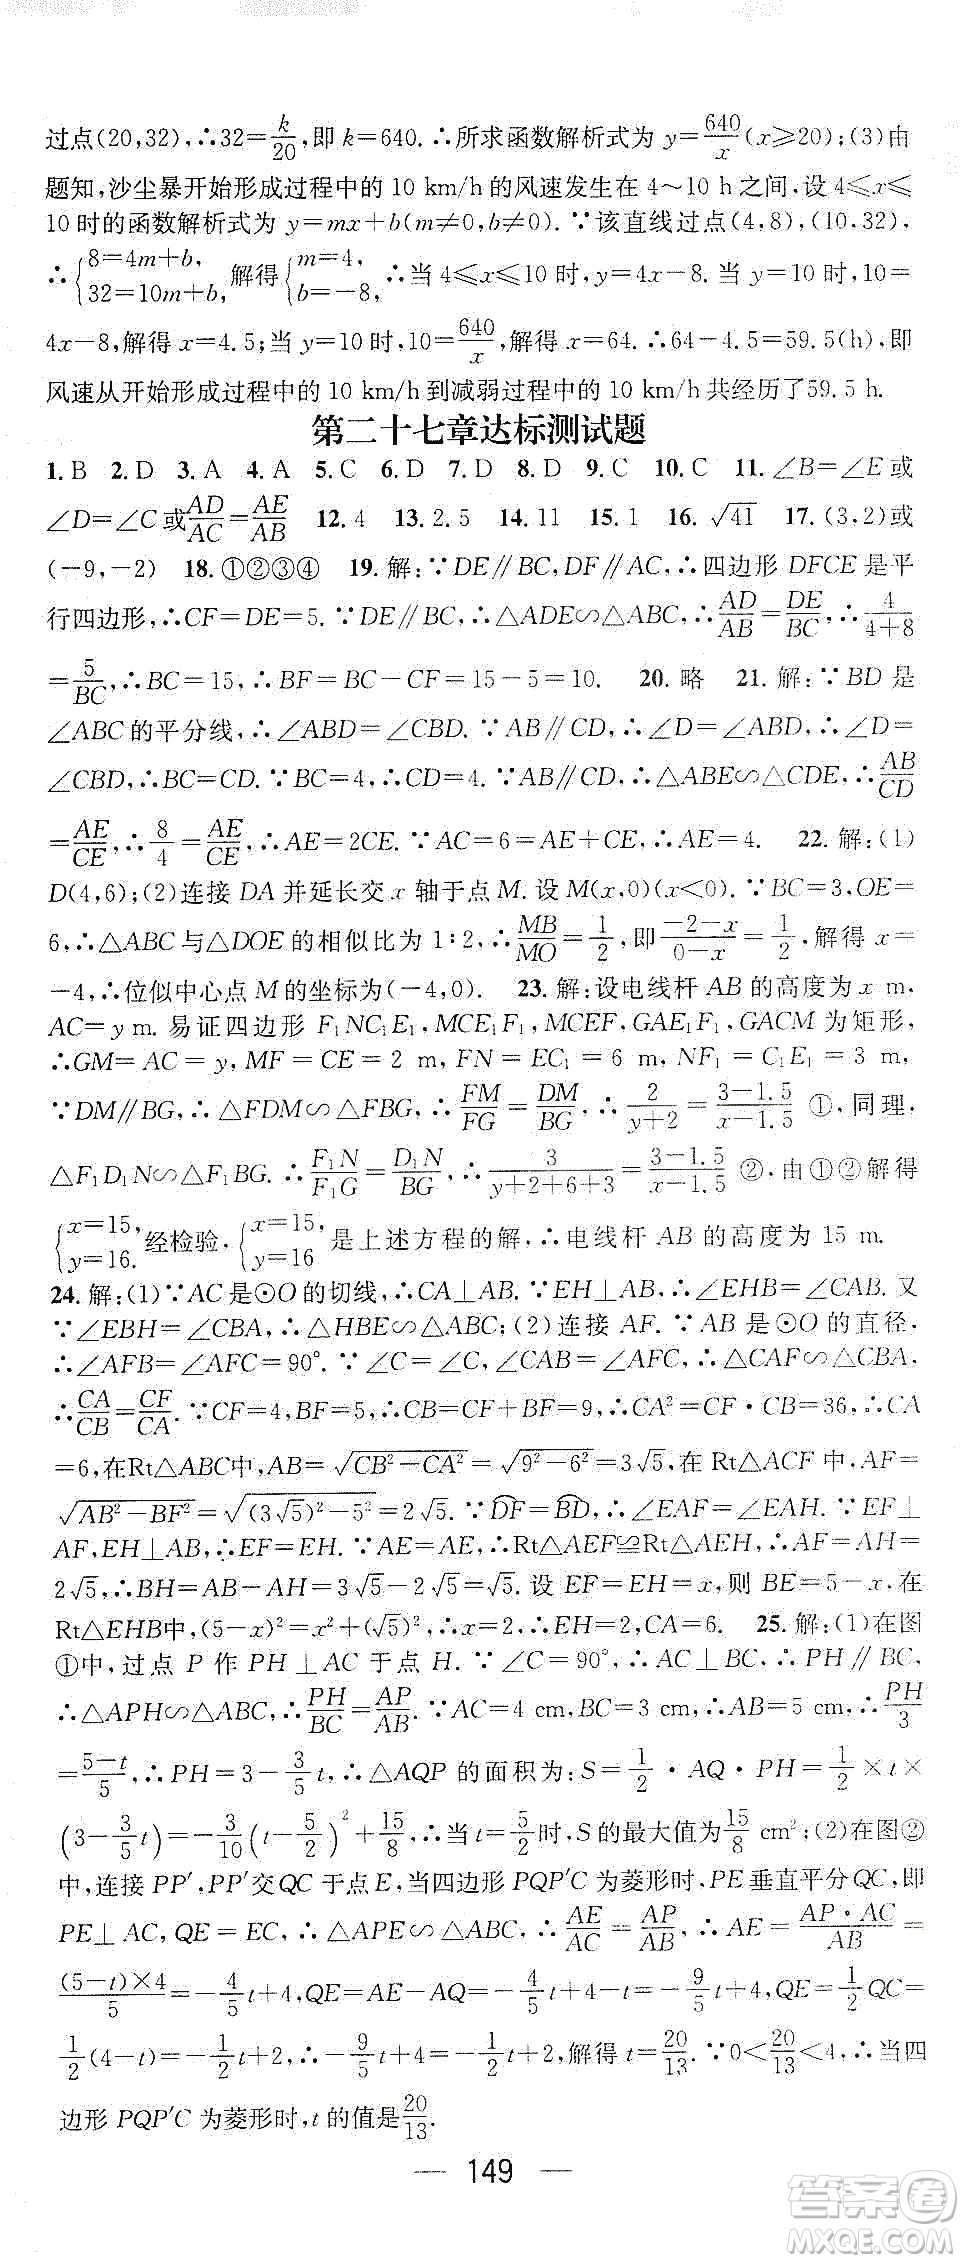 过点(20,32),∴32=k/20,即 k=640. ∴所求函数解析式为 y=640/x(x≥20);(3)由
题知,沙尘暴开始形成过程中的 10 km/h 的风速发生在 4～10 h 之间,设 4≤x≤
10 时的函数解析式为 y=mx+b(m≠0,b≠0). ∵该直线过点(4,8),(10,32),
∴{8=4m+b, 32=10m+b, 解得{m=4, b=-8, ∴当 4≤x≤10 时,y=4x-8. 当 y=10 时,10=
4x-8,解得 x=4.5;当 y=10 时,10=640/x,解得 x=64. ∴64-4.5=59.5(h),即
风速从开始形成过程中的 10 km/h 到减弱过程中的 10 km/h 共经历了59.5 h.
第二十七章达标测试题
1. B 2. D 3. A 4. A 5. C 6. D 7. D 8. D 9. C 10. C 11. ∠B=∠E或
∠D=∠C或AD/AC=AE/AB 12. 4 13. 2.5 14. 11 15. 1 16. √41 17. (3,2)或
(-9,-2) 18. ①②③④ 19. 解:∵DE∥BC,DF∥AC,∴四边形 DFCE 是平
行四边形,∴CF=DE=5. ∵DE∥BC,∴△ADE∽△ABC,∴AD/AB=DE/BC,∴4/(4+8)
=5/BC,∴BC=15,∴BF=BC-CF=15-5=10. 20. 略 21. 解:∵BD 是
∠ABC的平分线,∴∠ABD=∠CBD. ∵AB∥CD,∴∠D=∠ABD,∴∠D=
∠CBD,∴BC=CD. ∵BC=4,∴CD=4. ∵AB∥CD,∴△ABE∽△CDE,∴AB/CD
=AE/CE,∴8/4=AE/CE,∴AE=2CE. ∵AC=6=AE+CE,∴AE=4. 22. 解:(1)
D(4,6);(2)连接 DA 并延长交 x 轴于点 M. 设 M(x,0)(x<0). ∵BC=3,OE=
6,∴△ABC 与△DOE 的相似比为 1∶2,∴MB/MO=1/2,即(-2-x)/(0-x)=1/2,解得 x=
-4,∴位似中心点 M 的坐标为(-4,0). 23. 解:设电线杆 AB 的高度为 x m,
AC=y m. 易证四边形 F₁NC₁E₁,MCE₁F₁,MCEF,GAE₁F₁,GACM 为矩形,
∴GM=AC=y,MF=CE=2 m,FN=EC₁=6 m,NF₁=C₁E₁=3 m,
∵DM∥BG,∴△FDM∽△FBG,∴FM/FG=DM/BG,∴2/(y+2)=(3-1.5)/(x-1.5) ①,同理,
△F₁D₁N∽△F₁BG. ∴F₁N/F₁G=D₁N/BG,∴3/(y+2+6+3)=(3-1.5)/(x-1.5) ②,由①②解得
{x=15, y=16. 经检验,{x=15, y=16 是上述方程的解,∴电线杆 AB 的高度为 15 m.
24. 解:(1)∵AC是⊙O的切线,∴CA⊥AB. ∵EH⊥AB,∴∠EHB=∠CAB. 又
∵∠EBH=∠CBA,∴△HBE∽△ABC;(2)连接 AF. ∵AB 是⊙O 的直径,
∴∠AFB=∠AFC=90°. ∵∠C=∠C,∠CAB=∠AFC,∴△CAF∽△CBA,
∴CA/CB=CF/CA. ∵CF=4,BF=5,∴CB=CF+BF=9,∴CA²=CF·CB=36,∴CA
=6,在Rt△ABC中,AB=√(CB²-CA²)=√(9²-6²)=3√5,在 Rt△ACF 中,AF=
√(AB²-BF²)=√((3√5)²-5²)=2√5. ∵DF⌒=BD⌒,∴∠EAF=∠EAH. ∵EF⊥
AF,EH⊥AB,∴EF=EH. ∵AE=AE,∴Rt△AEF≌Rt△AEH,∴AF=AH=
2√5,∴BH=AB-AH=3√5-2√5=√5. 设 EF=EH=x,则 BE=5-x,在
Rt△EHB中,(5-x)²=x²+(√5)²,∴x=2,∴EH=2,CA=6. 25. 解:(1)在图
①中,过点 P 作 PH⊥AC 于点 H. ∵∠C=90°,∴AC⊥BC,∴PH∥BC,
∴△APH∽△ABC,∴PH/BC=AP/AB. ∵AC=4 cm,BC=3 cm,∴AB=5 cm,∴PH/3
=(5-t)/5,∴PH=3-3/5t,∴△AQP 的面积为:S=1/2·AQ·PH=1/2×t×
(3-3/5t)=-3/10(t-5/2)²+15/8,∴当 t=5/2时,S的最大值为15/8 cm²;(2)在图②
中,连接 PP′,PP′交QC于点E,当四边形 PQP′C 为菱形时,PE 垂直平分 QC,即
PE⊥AC,QE=EC,∴△APE∽△ABC,∴AE/AC=AP/AB,∴AE=(AP·AC)/AB=
((5-t)×4)/5=-4/5t+4,QE=AE-AQ=-4/5t+4-t=-9/5t+4,QE=1/2QC=
1/2(4-t)=-1/2t+2,∴-9/5t+4=-1/2t+2,解得 t=20/13. ∵0<20/13<4,∴当四
边形 PQP′C 为菱形时,t 的值是20/13.
— 149 —
答案卷
MXQE.COM